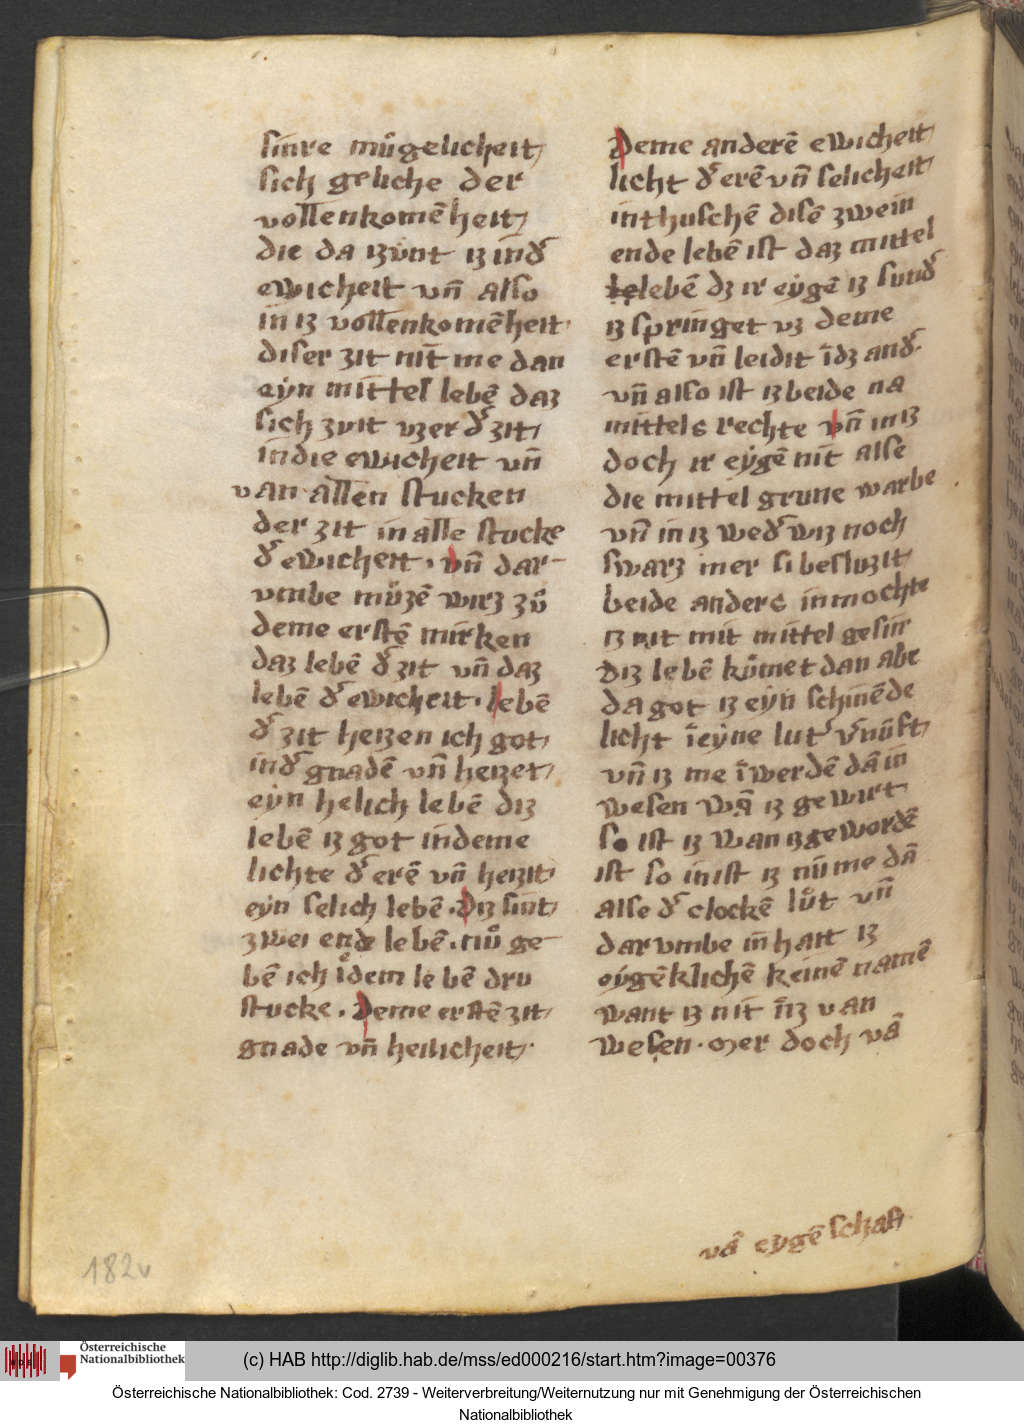 sinre mügelicheit
sich geliche der
vollenkomē heit
die da izünt iz ind̛
ewicheit vn̄ also
in iz vollenkomēheit
diser zit nit me dan
eyn mittel lebē daz
sich zvit vzer d̛ zit
indie ewicheit vn̄
van allen stucken
der zit in alle stucke
d̛ ewicheit · vn̄ dar-
vmbe müzē wirz zů
deme erstē mirken
daz lebē d̛ zit vn̄ daz
lebē d̛ ewicheit · lebē
d̛ zit heizen ich got
ind̛ gnadē vn̄ heizet
eyn helich lebē diz
lebē iz got indeme
lichte d̛ erē vn̄ heizit
eyn selich lebē · Diz sint
zwei ende lebē · nů ge
bē ich idem lebē dru
stucke · Deme erstē zit
gnade vn̄ heilicheit ·
Deme anderē ewicheit
licht d̛ erē vn̄ selicheit
inthuschē disē zwein
ende lebē ist daz mittel
lebē dz ir eygē iz sund̛
iz springet vz deme
erstē vn̄ leidit īdz and̛
vn̄ also ist iz beide na
mittels rechte vn̄ in iz
doch ir eygē nit alse
die mittel grune warbe
vn̄ in iz wed̛ wiz noch
swarz mer si besluzit
beide anders inmochte
iz nit mit mittel gesin
Diz lebē kümet dan abe
da got iz eyn schinēde
licht īeyne lut̛ v̛nüft
vn̄ iz me īwerdē dā in
wesen wā iz gewirt
so ist iz wan iz gewordē
ist so in ist iz nu me dā
alse d̛ clockē lůt vn̄
dar vmbe in hait iz
eygēklichē keinē namē
want iz nit īiz van
wesen · mer doch vā
vā eygēschaft
182v
Österreichische
Nationalbibliothek
(c) HAB http://diglib.hab.de/mss/ed000216/start.htm?image=00376
Österreichische Nationalbibliothek: Cod. 2739 - Weiterverbreitung/Weiternutzung nur mit Genehmigung der Österreichischen
Nationalbibliothek